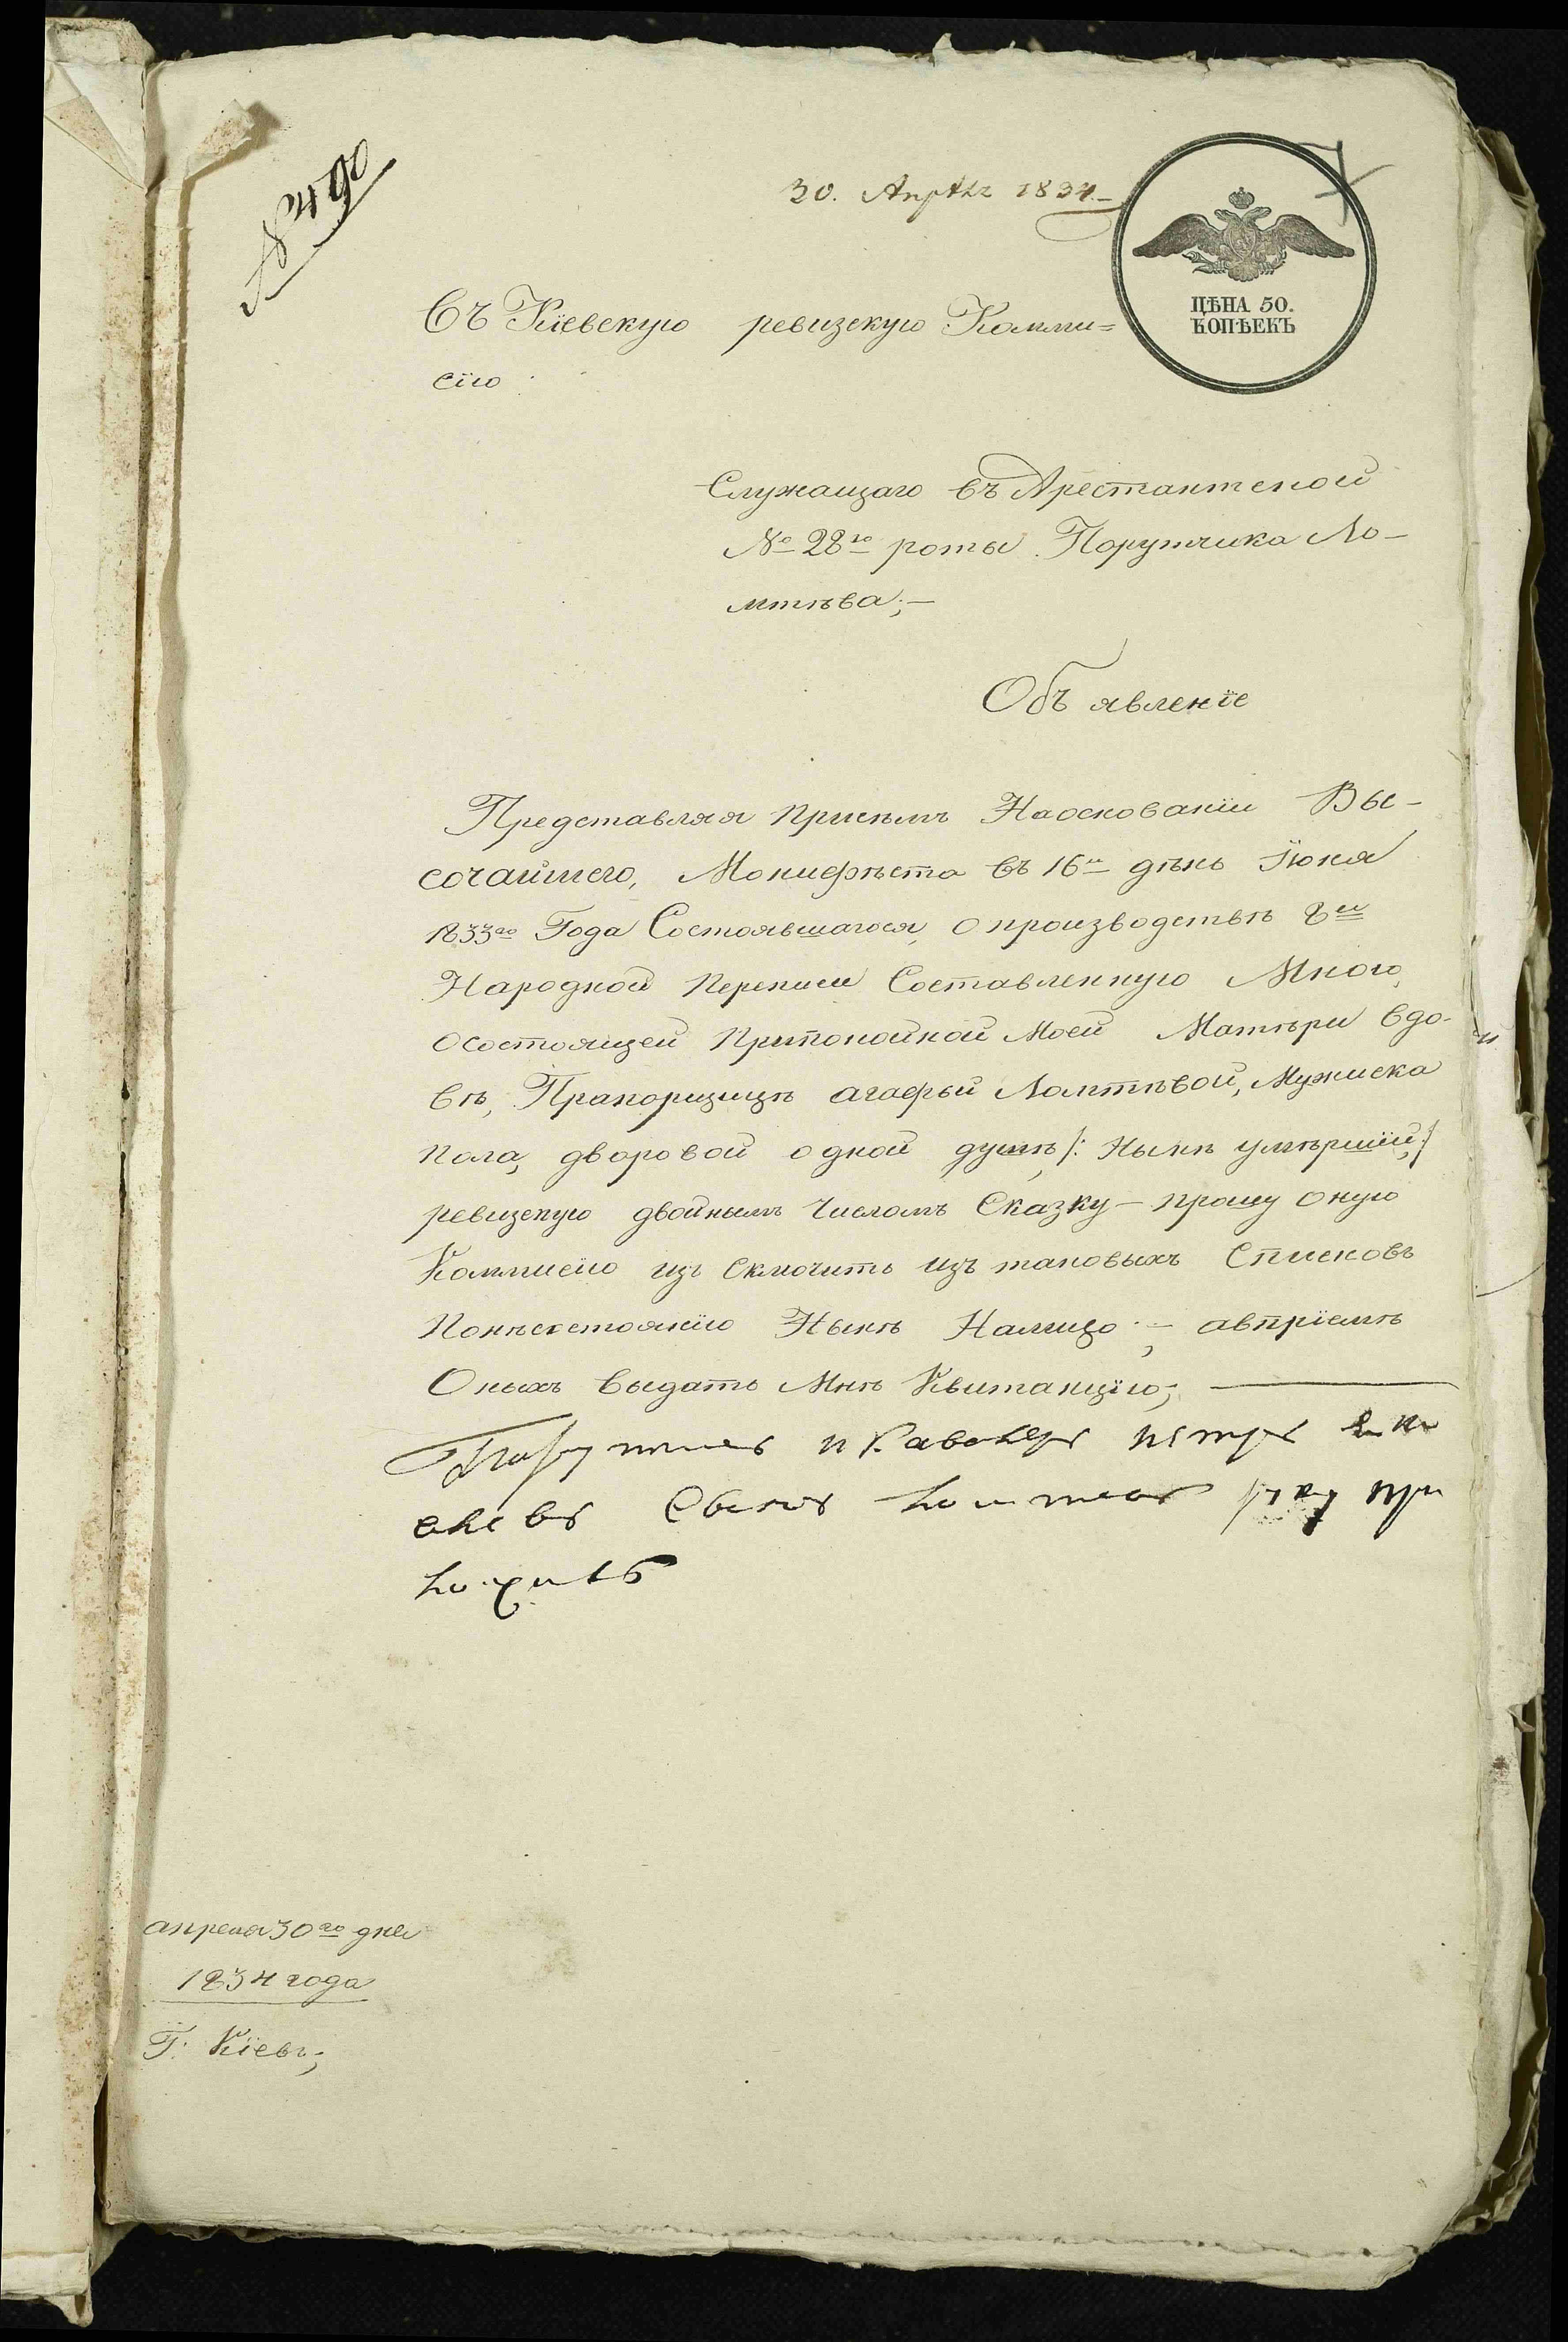 № 490
30. Апрѣля 1834.
ЦѢНА 50.
КОПѢЕКЪ
Въ Кіевскую ревизскую Комми=
сію
Служащаго въ Арестантской
№ 28го роты Порутчика Ло-
мтѣва;-
Объявленіе
Представляя присѣмъ Наоснованіи Вы-
сочайшего, Монифѣста въ 16й дѣнь Іюня
1833го Года Состоявшагося, о производствѣ 8ей
Народной Переписи Составленную Мною,
осостоящей Припокойной Моей Матѣри вдо-
вѣ, Прапорщицѣ агафьи Ломтѣвой, Мужиска
пола, дворовой одной душѣ /: Нынѣ умѣршій, :/
ревизскую двойнымъ Числомъ Сказку - прошу оную
Коммисію изъ Сключить изъ таковыхъ Списковъ
Понѣсостоянію Нынѣ Налицо; - авпріемѣ
Оныхъ выдать Мнѣ Квитанцію;
Порутчикъ и Кавалеръ петръ
сынъ Ломтевъ руку при
ложилъ
апреля 30го дня
1834 года
Г. Кіевъ;